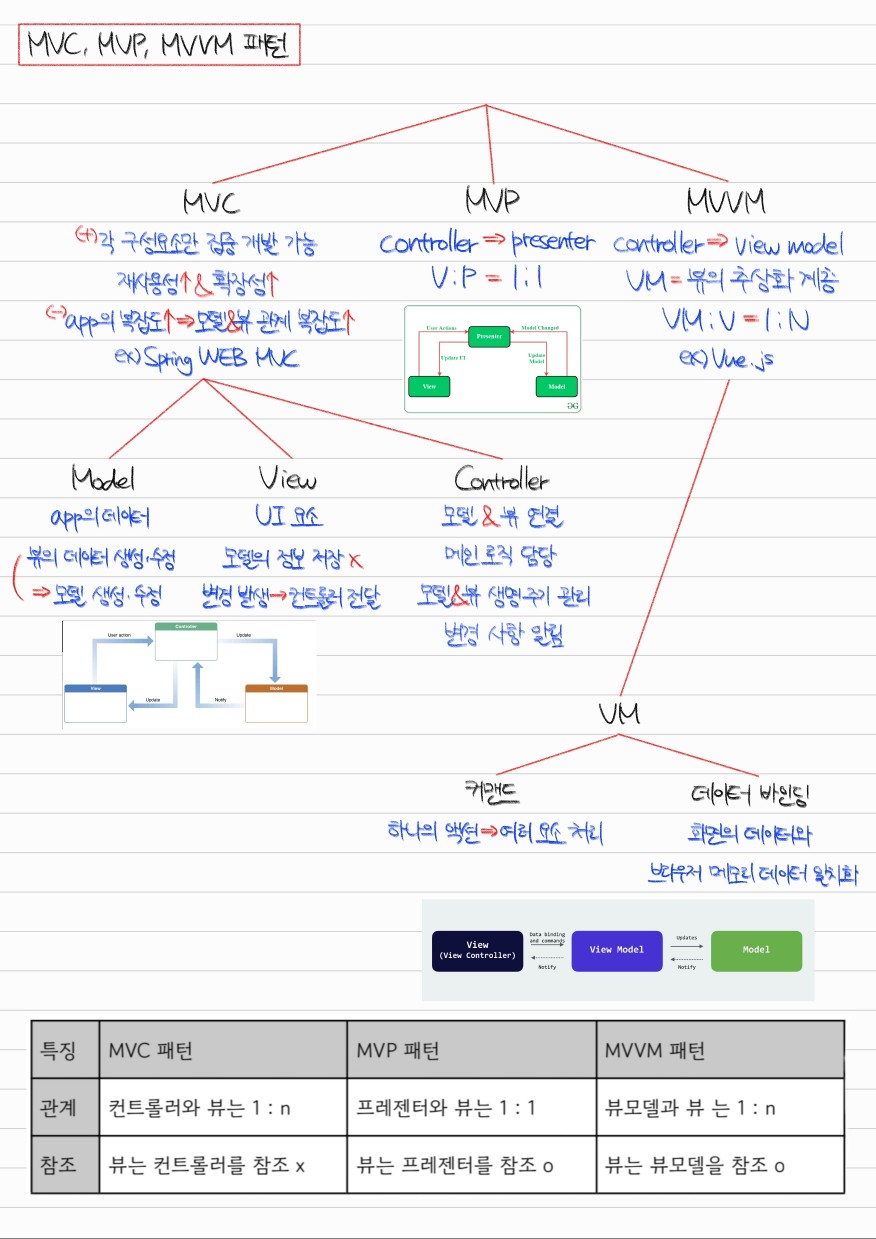 MVC, MVP, MVVM 패턴
MVC
(+)각 구성요소만 집중 개발 가능
재사용성↑ & 확장성↑
(-)app의 복잡도↑⇒모델&뷰 관계 복잡도↑
ex) Spring WEB MVC
MVP
controller ⇒ presenter
V:P = 1:1
User Actions
Model Changed
Presenter
Update UI
Update
Model
View
Model
MVVM
controller ⇒ view model
VM = 뷰의 추상화 계층
VM:V = 1:N
ex) Vue.js
Model
app의 데이터
뷰의 데이터 생성·수정
⇒ 모델 생성·수정
View
UI 요소
모델의 정보 저장 x
변경 발생→컨트롤러 전달
Controller
모델 & 뷰 연결
메인 로직 담당
모델&뷰 생명주기 관리
변경 사항 알림
Controller
User action
Update
View
Model
Update
Notify
VM
커맨드
하나의 액션⇒여러 요소 처리
데이터 바인딩
화면의 데이터와
브라우저 메모리 데이터 일치화
View
(View Controller)
Data binding
and commands
Notify
View Model
Updates
Notify
Model
특징 MVC 패턴 MVP 패턴 MVVM 패턴
관계 컨트롤러와 뷰는 1 : n 프레젠터와 뷰는 1 : 1 뷰모델과 뷰 는 1 : n
참조 뷰는 컨트롤러를 참조 x 뷰는 프레젠터를 참조 o 뷰는 뷰모델을 참조 o